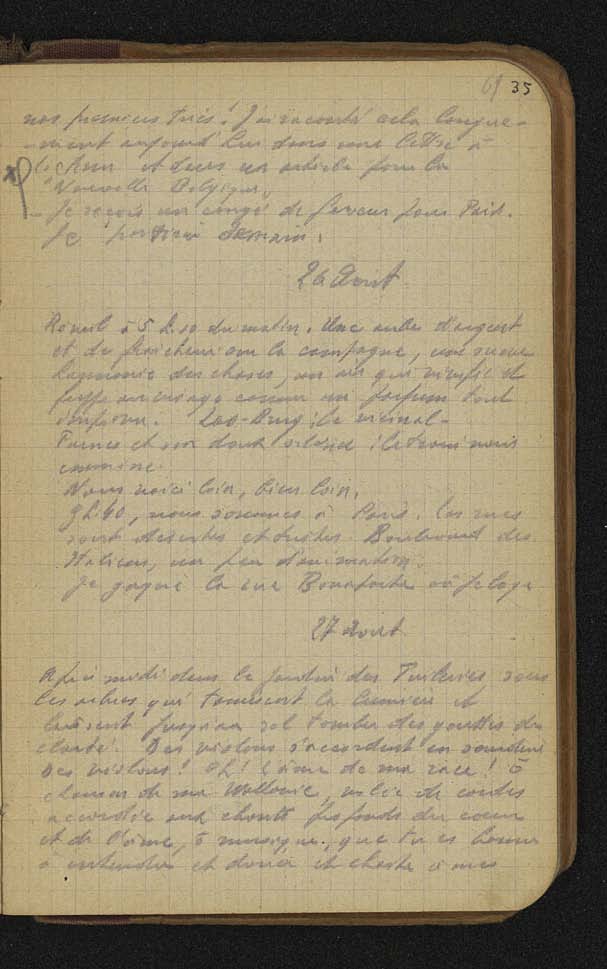 61 35
nos premiers tués ! J'ai raconté cela longue-
-ment aujourd'hui dans une lettre à
et dans un article pour la
"Nouvelle Belgique.
- Je reçois un congé de faveur pour Paris.
Je partirai demain.
26 Août
Réveil à 5 h. 10 du matin. Une aube d'argent
et de fraîcheur sur la campagne, une
harmonie des choses, un air qui vivifie et
au visage comme un parfum tout
Loo-Burg : le vicinal -
Furnes et son : le train nous
emmène.
Nous voici loin, bien loin.
9 h. 40, nous sommes à Paris. Les rues
sont désertes et tristes. Boulevard des
Italiens, un peu d'animation.
Je gagne la rue Bonaparte où je loge
27 août
Après midi dans le jardin des Tuileries sous
les arbres qui tamisent la lumière et
laissent jusqu'au sol tomber des gouttes de
clarté. Des violons s'accordent en sourdine
Des violons ! Oh ! l'âme de ma race ! ô
chanson de ma Wallonie, de cordes
accordée aux chants profonds du cœur
et de l'âme, ô musique, que tu es bonne
à entendre et douce et chaste à mes